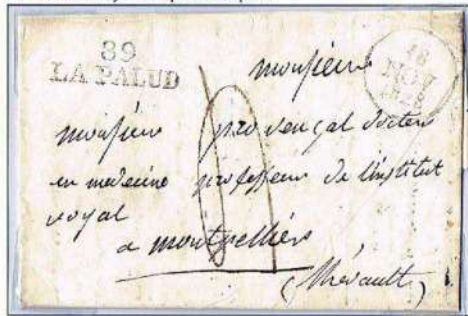 39
LA PALUD
18
NOV
monsieur
monsieur provençal docteur
en medecine professeur de l'institut
royal
a montpelliér
(Therault)